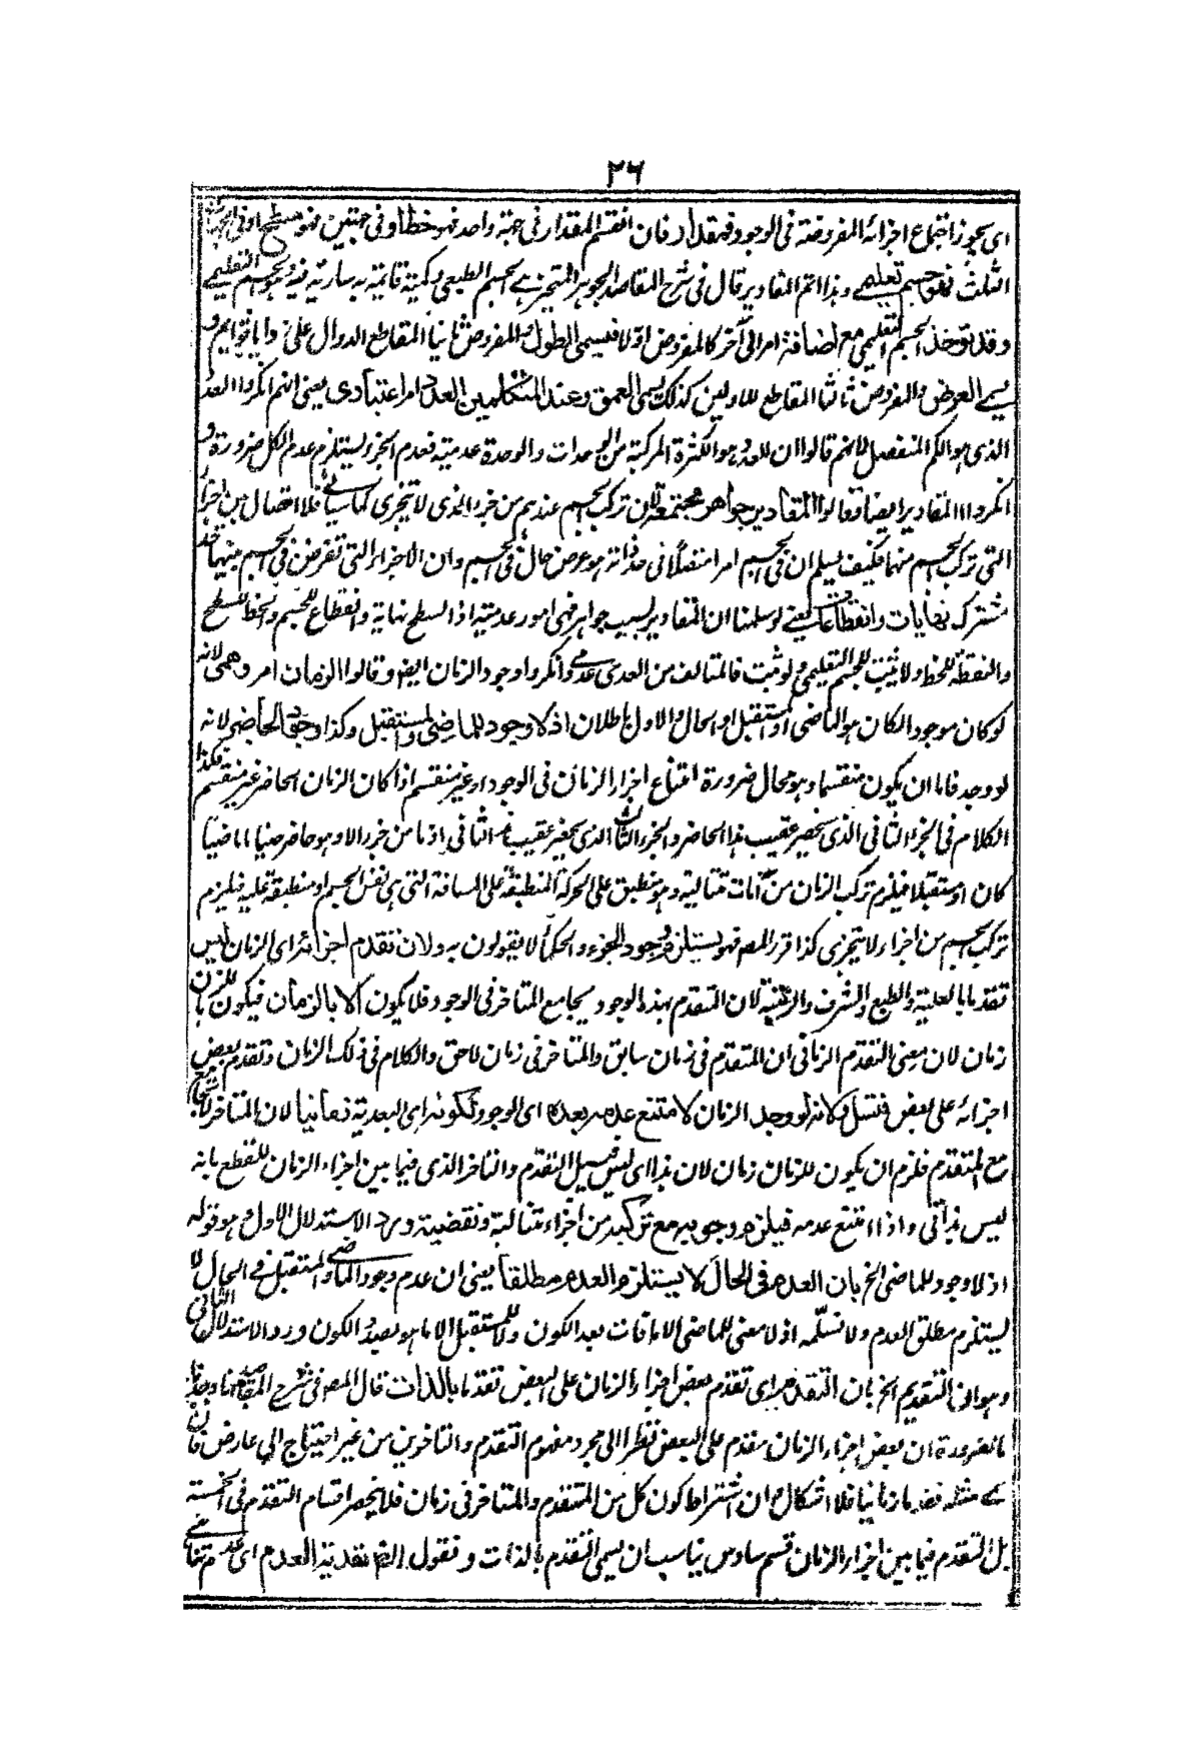 ٢٦
اى يجوز اجتماع اجزائه المفروضة فى الوجود فمقدار فان انقسم المقدار فى جهة واحد فهو خط او فى جهتين فهو سطح او فى الجهات
الثلث فهو جسم تعليمى وهذا اتم المقادير قال فى شرح المقاصد الجوهر المتحيز هى الجسم الطبعى وكمية قائمة به سارية فيه هو الجسم التعليمى
وقد توخذ الجسم التعليمى مع اضافة امر الى آخر كالمفروض اولا فيسمى الطول والمفروض ثانيا المقاطع الدوال على زوايا قوايم و
يسمى العرض والمفروض ثالثا المقاطع للاولين كذلك يسمى العمق وعند المتكلمين العدد امر اعتبادى يعنى انهم انكروا العدد
الذى هو الكم المنفصل لانهم قالوا ان العدد هو الكثرة المركبة من الوحدات والوحدة عدمية فعدم الجزء يستلزم عدم الكل ضرورة و
انكروا المقادير ايضا وقالوا المقادير جواهر مجتمعة لان تركب الجسم عندهم من جزء الذى لا يتجزى كما سياتى فلا اتصال بين اجزاء
التى تركب الجسم منها فكيف يسلم ان فى الجسم امرا متصلا فى حد ذاته هو عرض حال فى الجسم وان الاجزاء التى تفرض فى الجسم بينها حد
مشترك نهايات وانقطاعات يعنى لو سلمنا ان المقادير ليست جواهر فهى امور عدمية اذ السطح نهاية وانقطاع للجسم والخط للسطح
والنقطة للخط ولا يثبت للجسم التعليمى ولو ثبت فالمتالف من العدمى عدمى وانكروا وجود الزمان ايضا وقالوا الزمان امر وهمى لانه
لو كان موجودا لكان هو الماضى او المستقبل او الحال والاول باطلان اذ لا وجود للماضى والمستقبل وكذا وجود الحاضر لانه
لو وجد فاما ان يكون منقسما وهو محال ضرورة امتناع اجزاء الزمان فى الوجود او غير منقسم اذا كان الزمان الحاضر غير منقسم فكذا
الكلام فى الجزء الثانى الذى يحضر عقيب هذا الحاضر والجزء الثالث الذى يحضر عقيب الثانى اذ ما من جزء الا وهو حاضر حينا ما ماضيا
كان او مستقبلا فيلزم تركب الزمان من آنات متتالية وهو منطبق على الحركة المنطبقة على المسافة التى هى نفس الجسم او منطبقة عليه فيلزم
تركب الجسم من اجزاء لا يتجزى كذا قرر المصـ فهو يستلزم وجود الجزء والحكماء لا يقولون به ولان تقدم اجزائه اى الزمان ليس
تقدما بالعلية والطبع والشرف والرتبة لان المتقدم بهذه الوجوه يجامع المتاخر فى الوجود فلا يكون الا بالزمان فيكون للزمان
زمان لان معنى التقدم الزمانى ان المتقدم فى زمان سابق والمتاخر فى زمان لاحق والكلام فى ذلك الزمان وتقدم بعض
اجزائه على بعض فتسلسل ولانه لو وجد الزمان لامتنع عدمه بعده اى الوجود لكونه اى البعدية زمانيا لان المتاخر لا يجامع
مع المتقدم فلزم ان يكون للزمان زمان لان هذا اى ليس قبيل التقدم والتاخر الذى فيما بين اجزاء الزمان للقطع بانه
ليس بذاتى واذا امتنع عدمه فيلزم وجوبه مع تركبه من اجزاء متتالية وتقضيه ورد الاستدلال الاول وهو قوله
اذ لا وجود للماضى الخ بان العدم فى الحال لا يستلزم العدم مطلقا يعنى ان عدم وجود الماضى والمستقبل فى الحال لا
يستلزم مطلق العدم ولا نسلّمه اذ لا معنى للماضى الا ما فات بعد الكون ولا للمستقبل الا ما هو بصدد الكون ورد الاستدلال الثانى
وهو ان التقديم الخ بان التقدم اى تقدم بعض اجزاء الزمان على البعض تقدما بالذات قال المصـ فى شرح المقاصد
بالضرورة ان بعض اجزاء الزمان مقدم على البعض نظرا الى مجرد مفهوم التقدم والتاخرين من غير احتياج الى عارض فان
سمى مثله تقدما زمانيا فلا اشكال وان اشتراط كون كل من المتقدم والمتاخر فى زمان فلا ينحصر اقسام التقدم فى الخمسة
بل التقدم فيما بين اجزاء الزمان قسم سادس يناسب ان يسمى التقدم بالذات ونقول ايضا بعدية العدم اى